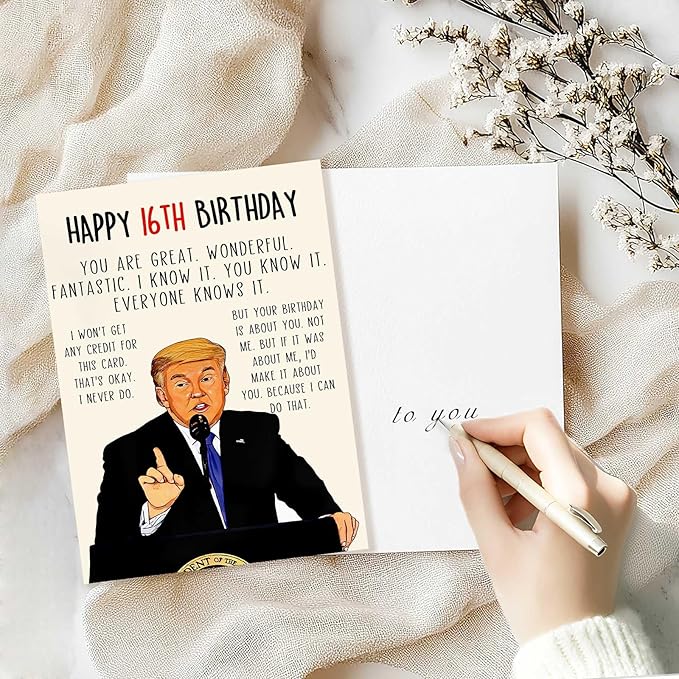 HAPPY 16TH BIRTHDAY
YOU ARE GREAT. WONDERFUL.
FANTASTIC. I KNOW IT. YOU KNOW IT.
EVERYONE KNOWS IT.
I WON'T GET
ANY CREDIT FOR
THIS CARD.
THAT'S OKAY.
I NEVER DO.
BUT YOUR BIRTHDAY
IS ABOUT YOU. NOT
ME. BUT IF IT WAS
ABOUT ME, I'D
MAKE IT ABOUT
YOU. BECAUSE I CAN
DO THAT.
DENT OF THE
to you